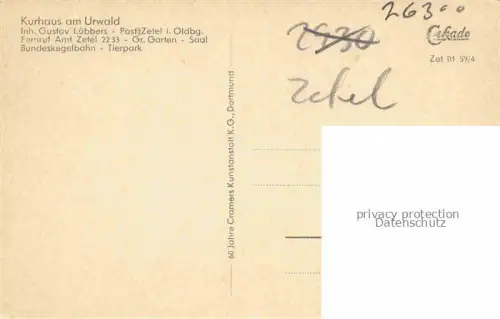 Kurhaus am Urwald
Inh. Gustav Lübbers - Post Zetel i. Oldbg.
Fernruf Amt Zetel 2233 - Gr. Garten - Saal
Bundeskegelbahn - Tierpark
26300
2930
Zetel
Cekade
Zet 01 59/4
60 Jahre Cramers Kunstanstalt K.G., Dortmund
privacy protection
copyright